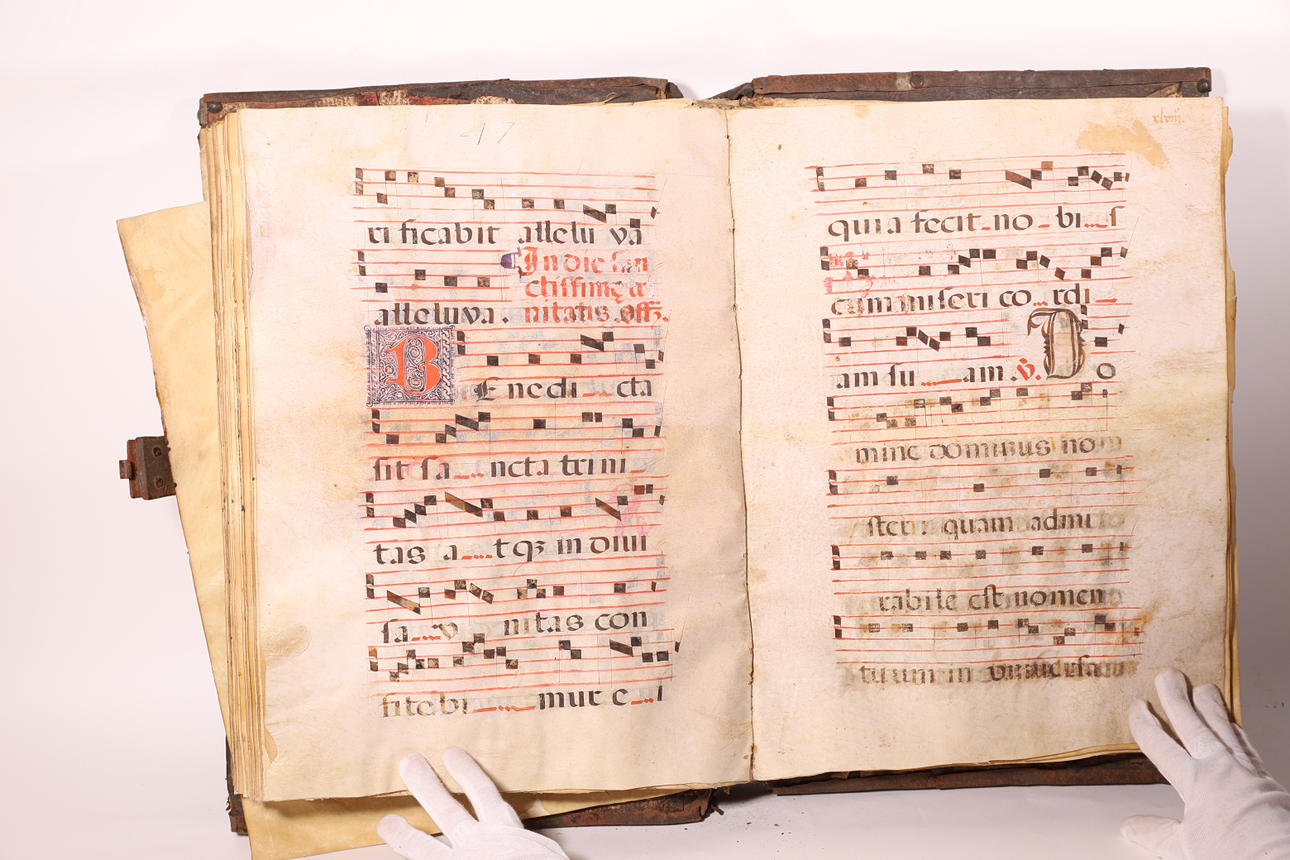 47
rificabit alleluya
In die san
ctissimę tr
alleluya. nitatis. Offz.
BEnedicta
sit sancta trini
tas atqꝫ indiui
sa vnitas con
fitebimur ei
xlviij.
quia fecit nobis
cum misericordi
am suam. V. Do
mine dominus no
ster quam admi
rabile est nomen
tuum in